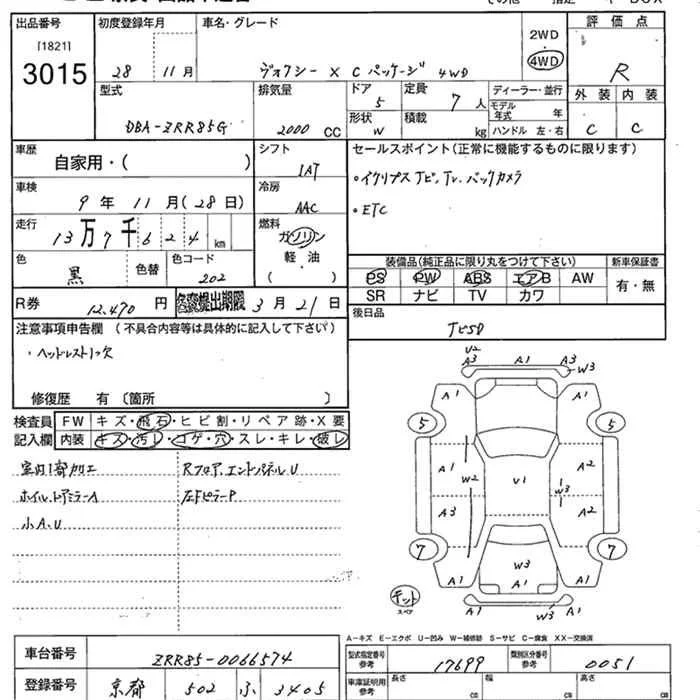 出品番号 初度登録年月 車名・グレード 2WD 評価点
[1821]
3015 28 11月 ヴォクシー X Cパッケージ 4WD 4WD R
型式 排気量 ドア 5 定員 7人 ディーラー・並行 外装 内装
モデル年式 年
DBA-ZRR85G 2000 CC 形状 W 積載 kg ハンドル 左・右 C C
車歴 自家用・( ) シフト セールスポイント(正常に機能するものに限ります)
IAT
車検 9年 11月(28日) 冷房 ・イクリプス Tビ、Tv、バックカメラ
AAC ・ETC
走行 13万7千624km 燃料 ガソリン
軽・油
( )
色 黒 色替 色コード 202
装備品(純正品に限り丸をつけて下さい) 新車保証書
PS PW ABS エアB AW 有・無
SR ナビ TV カワ
R券 12,470円 名変提出期限 3月21日
後日品
TビSD
注意事項申告欄 (不具合内容等は具体的に記入して下さい)
・ヘッドレスト1ヶ欠
修復歴 有 〔箇所 〕
検査員 FW キズ・飛石・ヒビ割・リペア跡・X要
記入欄 内装 キズ・汚レ・コゲ・穴・スレ・キレ・破レ
室内1部加工 Rフロア、エンドパネルU
ホイル、ドアミラーA 左FピラーP
小A、U
U2
A3 A1 A3
W3
A1 A1
5 5
A1 A2
W2 V1 W3
A3 A2
7 7
W3
A1 A1 A1
W3
A1
キット
スペア
A-キズ E-エクボ U-凹み W-補修跡 S-サビ C-腐食 XX-交換済
車台番号 ZRR85-0066574
型式指定番号 参考 17699 類別区分番号 参考 0051
登録番号 京都 502 ふ 3405
車庫証明用 参考 長さ CM 幅 CM 高さ CM